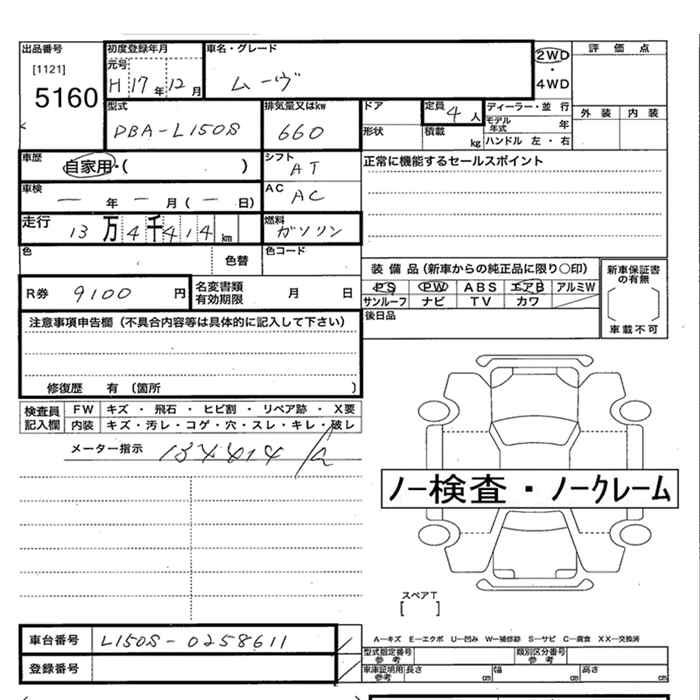 出品番号 初度登録年月 車名・グレード 評価点
[1121] 元号 ムーヴ 2WD
5160 H 17年 12月 ・
4WD
型式 排気量又はkw ドア 定員 4人 ディーラー・並行 外装 内装
DBA-L150S 660 モデル年式 年
形状 積載 kg ハンドル 左・右
車歴 自家用・( ) シフト AT 正常に機能するセールスポイント
車検 ー年ー月(ー日) AC AC
走行 13万4千414km 燃料 ガソリン
色 色替 色コード
装備品(新車からの純正品に限り○印) 新車保証書の有無
R券 9100円 名変書類有効期限 月 日 PS PW ABS エアB アルミW
サンルーフ ナビ TV カワ
車載不可
注意事項申告欄(不具合内容等は具体的に記入して下さい) 後日品
修復歴 有(箇所 )
検査員記入欄 FW キズ・飛石・ヒビ割・リペア跡・X要
内装 キズ・汚レ・コゲ・穴・スレ・キレ・破レ
メーター指示 134414
ノー検査・ノークレーム
スペアT
[ ]
車台番号 L150S-0258611 A-キズ E-エクボ U-凹み W-補修跡 S-サビ C-腐食 XX-交換済
型式指定番号参考 類別区分番号参考
登録番号 車庫証明用参考 長さ cm 幅 cm 高さ cm